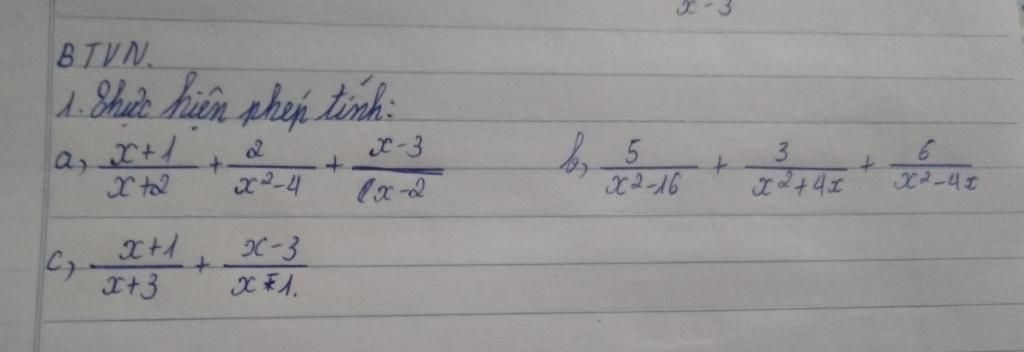 x-3
BTVN.
1. Thực hiện phép tính:
a, \frac{x+1}{x+2} + \frac{2}{x²-4} + \frac{x-3}{x-2} b, \frac{5}{x²-16} + \frac{3}{x²+4x} + \frac{6}{x²-4x}
c, \frac{x+1}{x+3} + \frac{x-3}{x-1}.